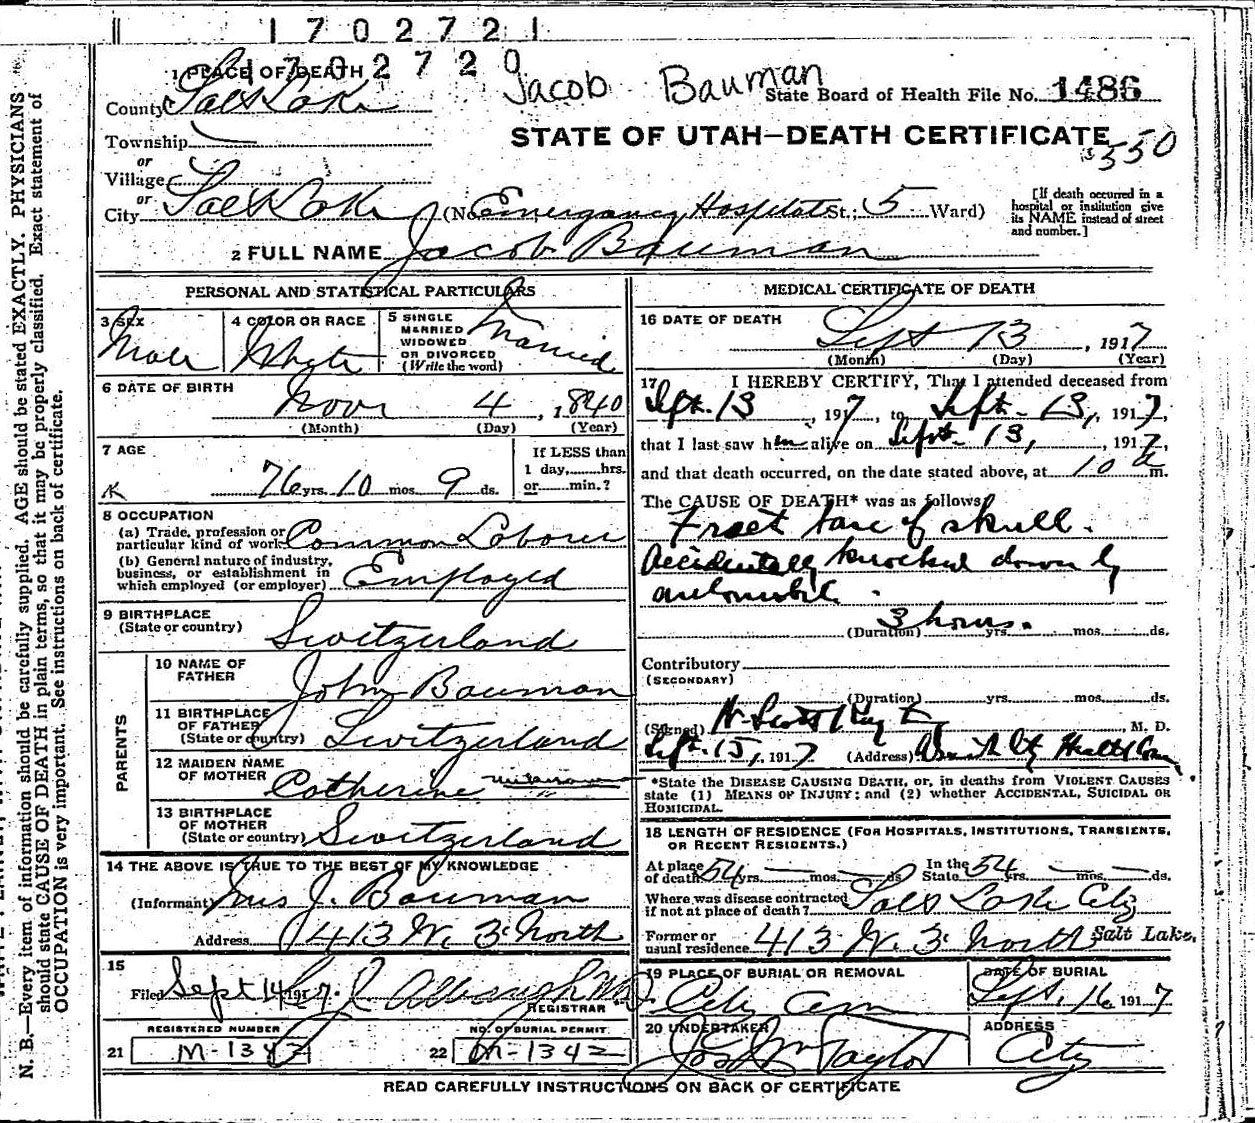 1702721
1702720
Jacob Bauman
1 PLACE OF DEATH
County Salt Lake
State Board of Health File No. 1486
STATE OF UTAH—DEATH CERTIFICATE
Township
550
or
Village
or
City Salt Lake (No. Emergency Hospital St.; 5 Ward)
[If death occurred in a hospital or institution give its NAME instead of street and number.]
2 FULL NAME Jacob Bauman
PERSONAL AND STATISTICAL PARTICULARS
3 SEX Male
4 COLOR OR RACE White
5 SINGLE MARRIED WIDOWED OR DIVORCED (Write the word) Married
6 DATE OF BIRTH Nov 4, 1840
(Month) (Day) (Year)
7 AGE
76 yrs. 10 mos. 9 ds.
If LESS than 1 day,......hrs. or......min.?
8 OCCUPATION
(a) Trade, profession or particular kind of work Common Laborer
(b) General nature of industry, business, or establishment in which employed (or employer) Employed
9 BIRTHPLACE
(State or country) Switzerland
PARENTS
10 NAME OF FATHER John Bauman
11 BIRTHPLACE OF FATHER (State or country) Switzerland
12 MAIDEN NAME OF MOTHER Catherine unknown
13 BIRTHPLACE OF MOTHER (State or country) Switzerland
14 THE ABOVE IS TRUE TO THE BEST OF MY KNOWLEDGE
(Informant) Mrs J. Bauman
Address 413 W. 3rd North
15
Filed Sept 14, 1917.
REGISTRAR
REGISTERED NUMBER
21 M-1342
NO. OF BURIAL PERMIT
22 M-1342
MEDICAL CERTIFICATE OF DEATH
16 DATE OF DEATH
Sept 13, 1917
(Month) (Day) (Year)
17 I HEREBY CERTIFY, That I attended deceased from
Sept. 13, 1917, to Sept. 13, 1917,
that I last saw him alive on Sept. 13, 1917,
and that death occurred, on the date stated above, at 10 a m.
The CAUSE OF DEATH* was as follows:
Fract base of skull.
Accidentally knocked down by
automobile.
3 hours.
(Duration) yrs. mos. ds.
Contributory
(SECONDARY)
(Duration) yrs. mos. ds.
(Signed) M. D.
Sept. 15, 1917 (Address)
*State the DISEASE CAUSING DEATH, or, in deaths from VIOLENT CAUSES
state (1) MEANS OF INJURY; and (2) whether ACCIDENTAL, SUICIDAL OR
HOMICIDAL.
18 LENGTH OF RESIDENCE (FOR HOSPITALS, INSTITUTIONS, TRANSIENTS,
OR RECENT RESIDENTS.)
At place of death 54 yrs. — mos. — ds. In the State 54 yrs. — mos. — ds.
Where was disease contracted if not at place of death? Salt Lake City
Former or usual residence 413 W. 3rd North Salt Lake.
19 PLACE OF BURIAL OR REMOVAL
City Cem
DATE OF BURIAL
Sept. 16, 1917
20 UNDERTAKER
Jos. Wm Taylor
ADDRESS
City
READ CAREFULLY INSTRUCTIONS ON BACK OF CERTIFICATE
N. B.—Every item of information should be carefully supplied. AGE should be stated EXACTLY. PHYSICIANS
should state CAUSE OF DEATH in plain terms, so that it may be properly classified. Exact statement of
OCCUPATION is very important. See instructions on back of certificate.